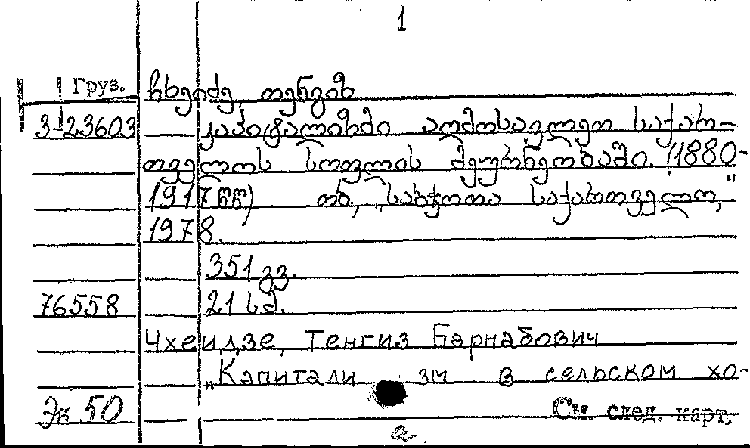 1
Груз.
ჩხეიძე, თენგიზ
3-23603 კაპიტალიზმი აღმოსავლეთ საქარ-
თველოს სოფლის მეურნეობაში. (1880-
1917 წწ) თბ., „საბჭოთა საქართველო“,
1978.
351 გვ.
76558 21 სმ.
Чхеидзе, Тенгиз Барнабович
„Капитали зм в сельском хо-
Эк 50 См. след. карт.
а